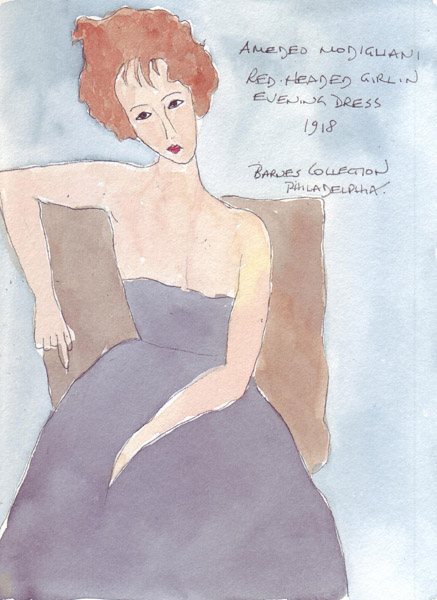 AMEDEO MODIGLIANI
RED-HEADED GIRL IN
EVENING DRESS
1918
BARNES COLLECTION
PHILADELPHIA.